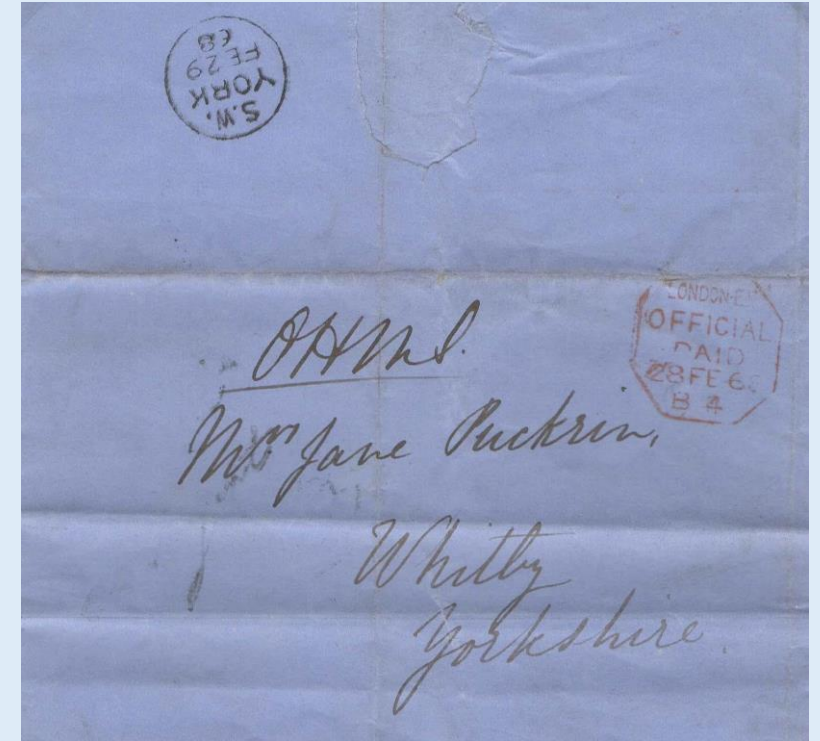 S.W.
YORK
FE 29
68
OFFICIAL
PAID
28 FE 6
B 4
OHMS.
Mrs Jane Puckrin,
Whitby
Yorkshire.